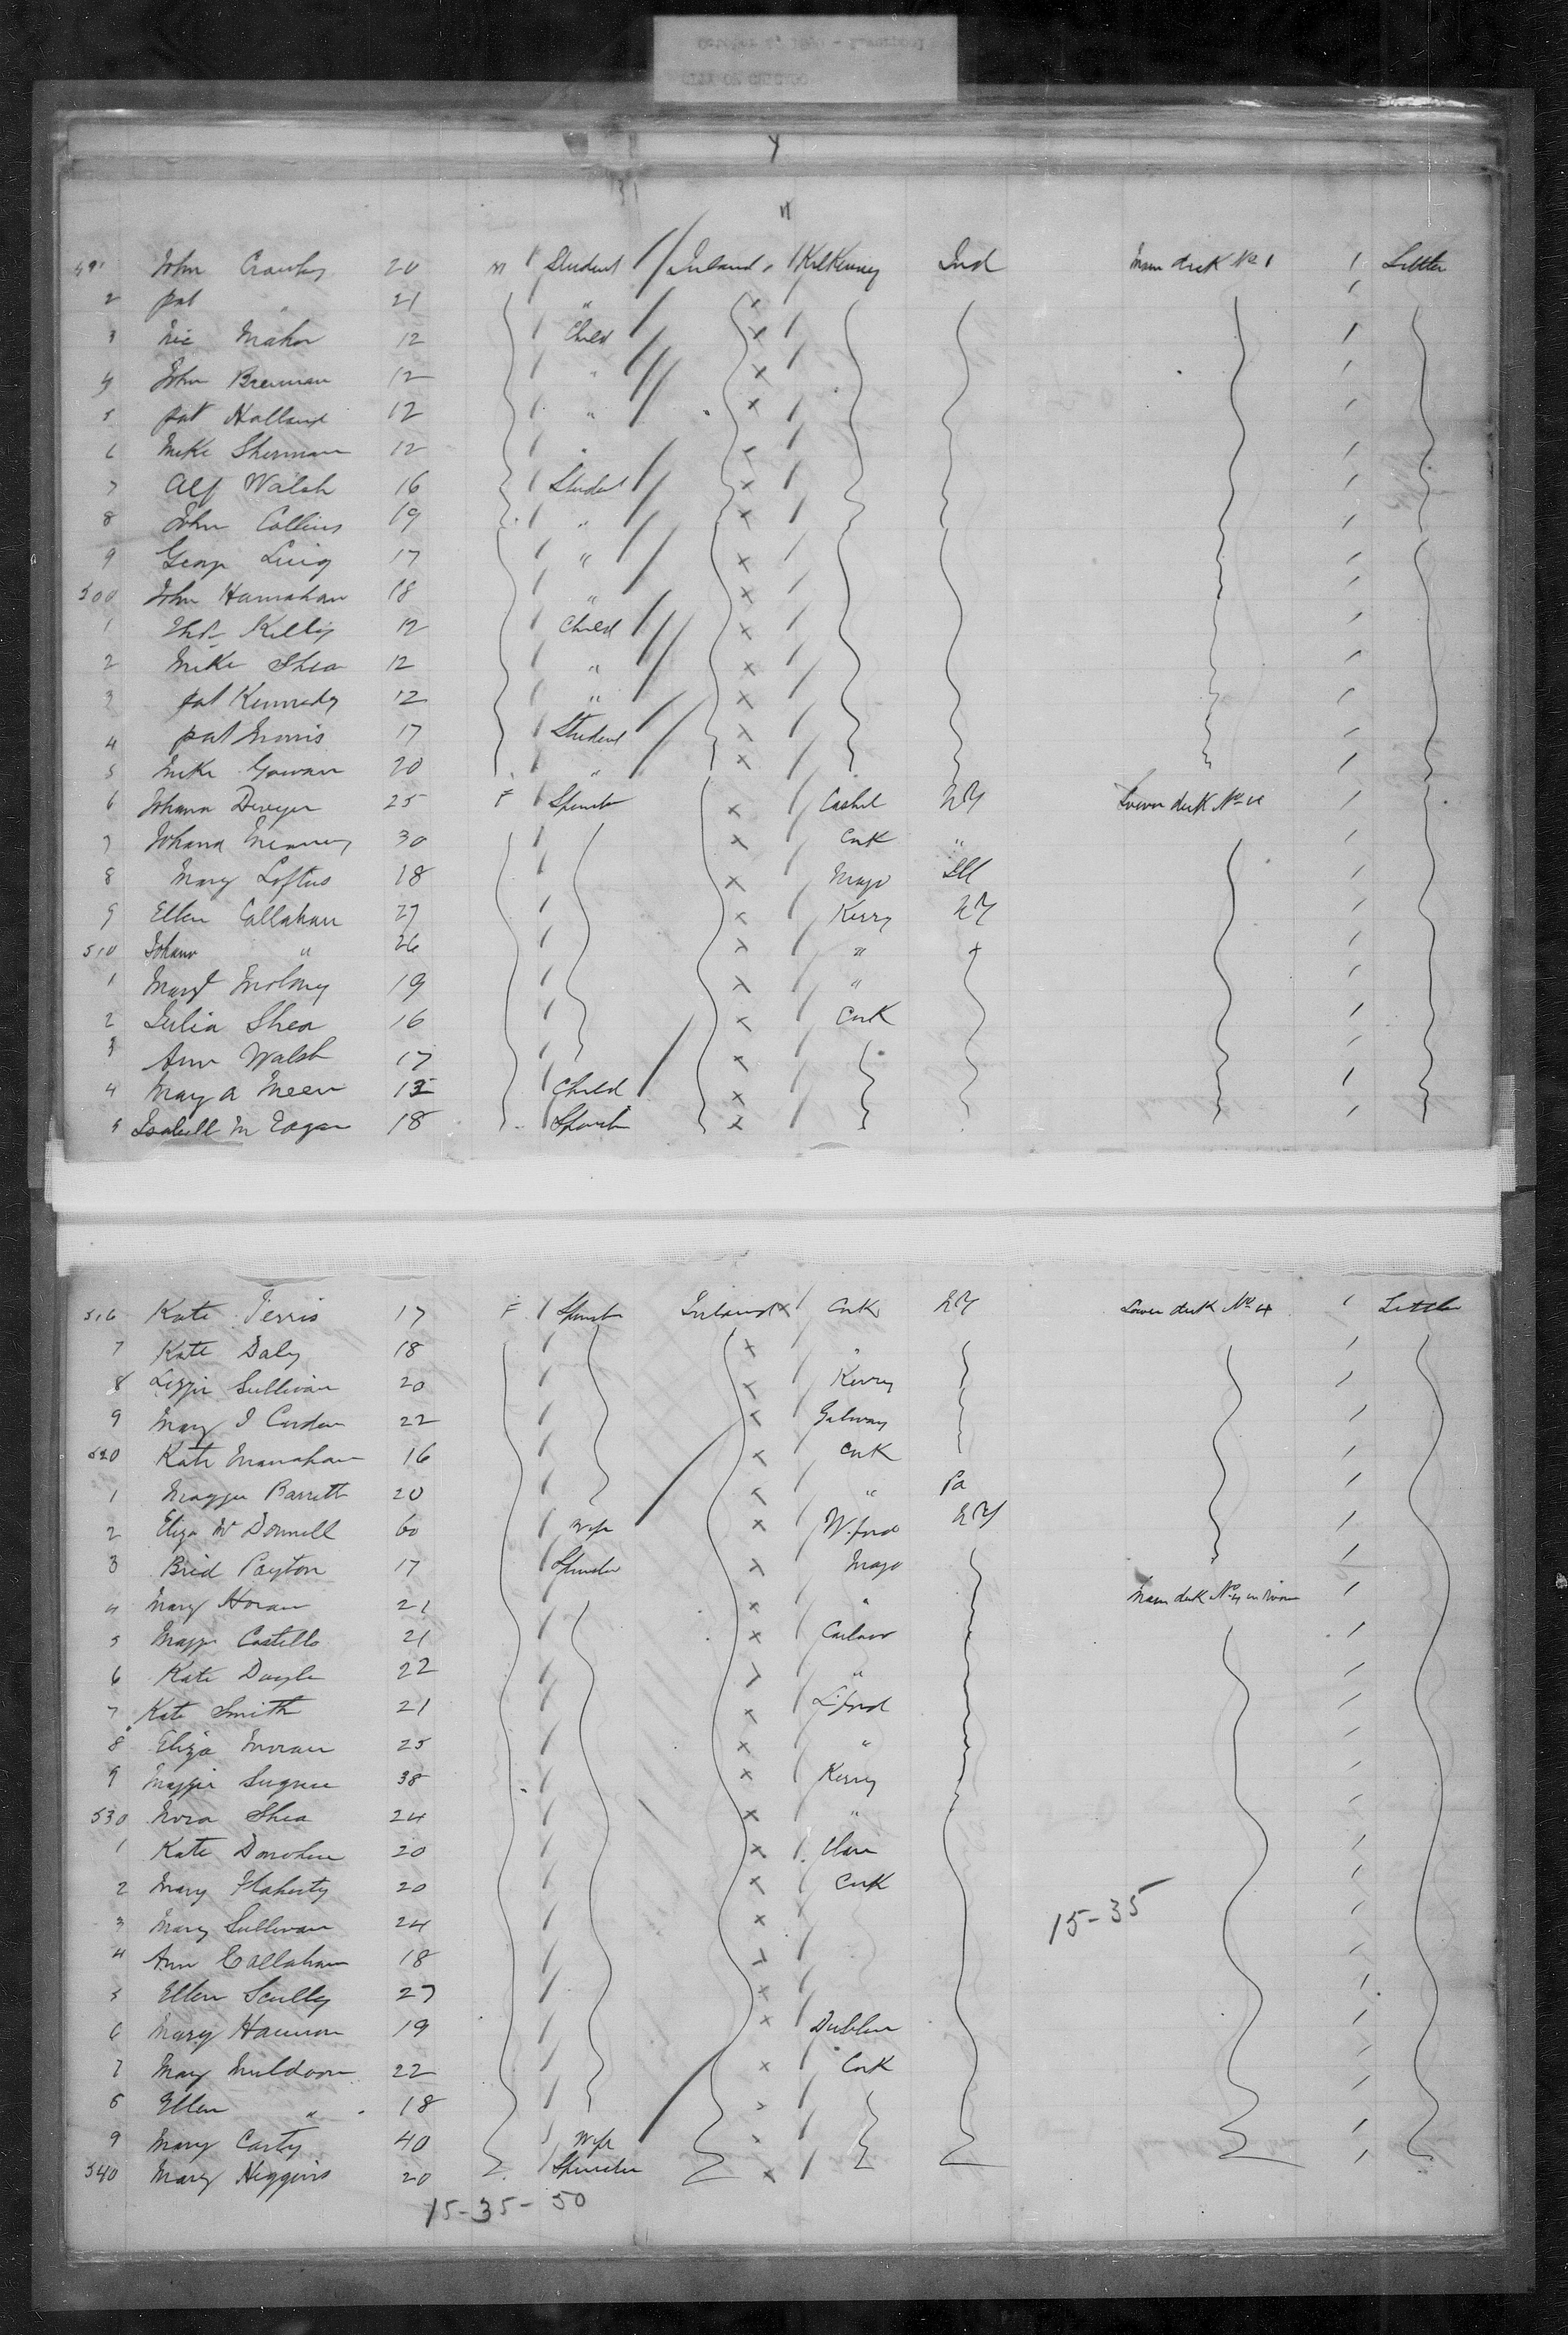 491 John Crowley 20 M 1 Student Ireland Kilkenny Ind Main deck No 1 1 Settler
2 Pat " 21 "
3 Mic Mahor 12 Child
4 John Brennan 12 "
5 Pat Holland 12 "
6 Mike Sherman 12 "
7 Alf Walsh 16 Student
8 John Collins 19 "
9 George 17 "
500 John Hanrahan 18 "
1 Kelly 12 Child
2 Mike Shea 12 "
3 Pat Kennedy 12 "
4 Pat Morris 17 Student
5 Mike Gowan 20 "
6 Johana Dwyer 25 F 1 Spinster Cashel NY Lower deck No 4
7 Johana 30 Cork "
8 Mary Loftus 18 Mayo Ill
9 Ellen Callahan 27 Kerry NY
510 Johana " 26 "
1 Margt Molony 19 "
2 Julia Shea 16 Cork
3 Ann Walsh 17
4 Mary A 12 Child
5 Isabell Mc Eagan 18 Spinster
516 Kate Ferris 17 F 1 Spinster Ireland Cork NY Lower deck No 4 1 Settler
7 Kate Daly 18 "
8 Lizzie Sullivan 20 Kerry
9 Mary J 22 Galway
520 Kate Manahan 16 Cork
1 Maggie Barrett 20 " Pa
2 Eliza Mc Donnell 60 Wife W.ford NY
3 Brid Payton 17 Spinster Mayo
4 Mary Horan 21 " Main deck
5 Maggie Costello 21 Carlow
6 Kate Doyle 22 "
7 Kate Smith 21 L.ford
8 Eliza Moran 25 "
9 Maggie Sugrue 38 Kerry
530 Nora Shea 24 "
1 Kate Donohue 20 Clare
2 Mary Flaherty 20 Cork
3 Mary Sullivan 24 15-35
4 Ann Callahan 18
5 Ellen Scully 27
6 Mary Hannon 19 Dublin
7 Mary Muldoon 22 Cork
8 Ellen " 18
9 Mary Carty 40 Wife
540 Mary Higgins 20 Spinster
15-35-50